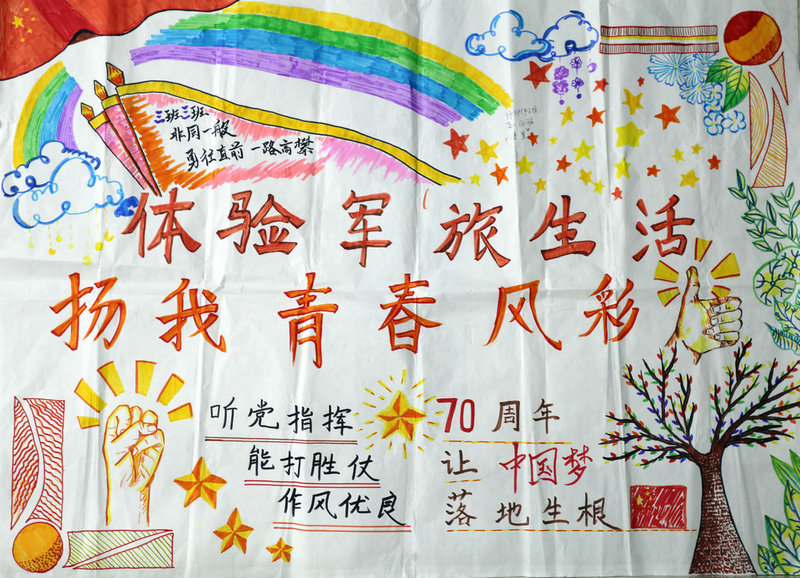 三班三班
非同一般
勇往直前 一路高攀
体验军旅生活
扬我青春风彩
听党指挥
能打胜仗
作风优良
70周年
让中国梦
落地生根